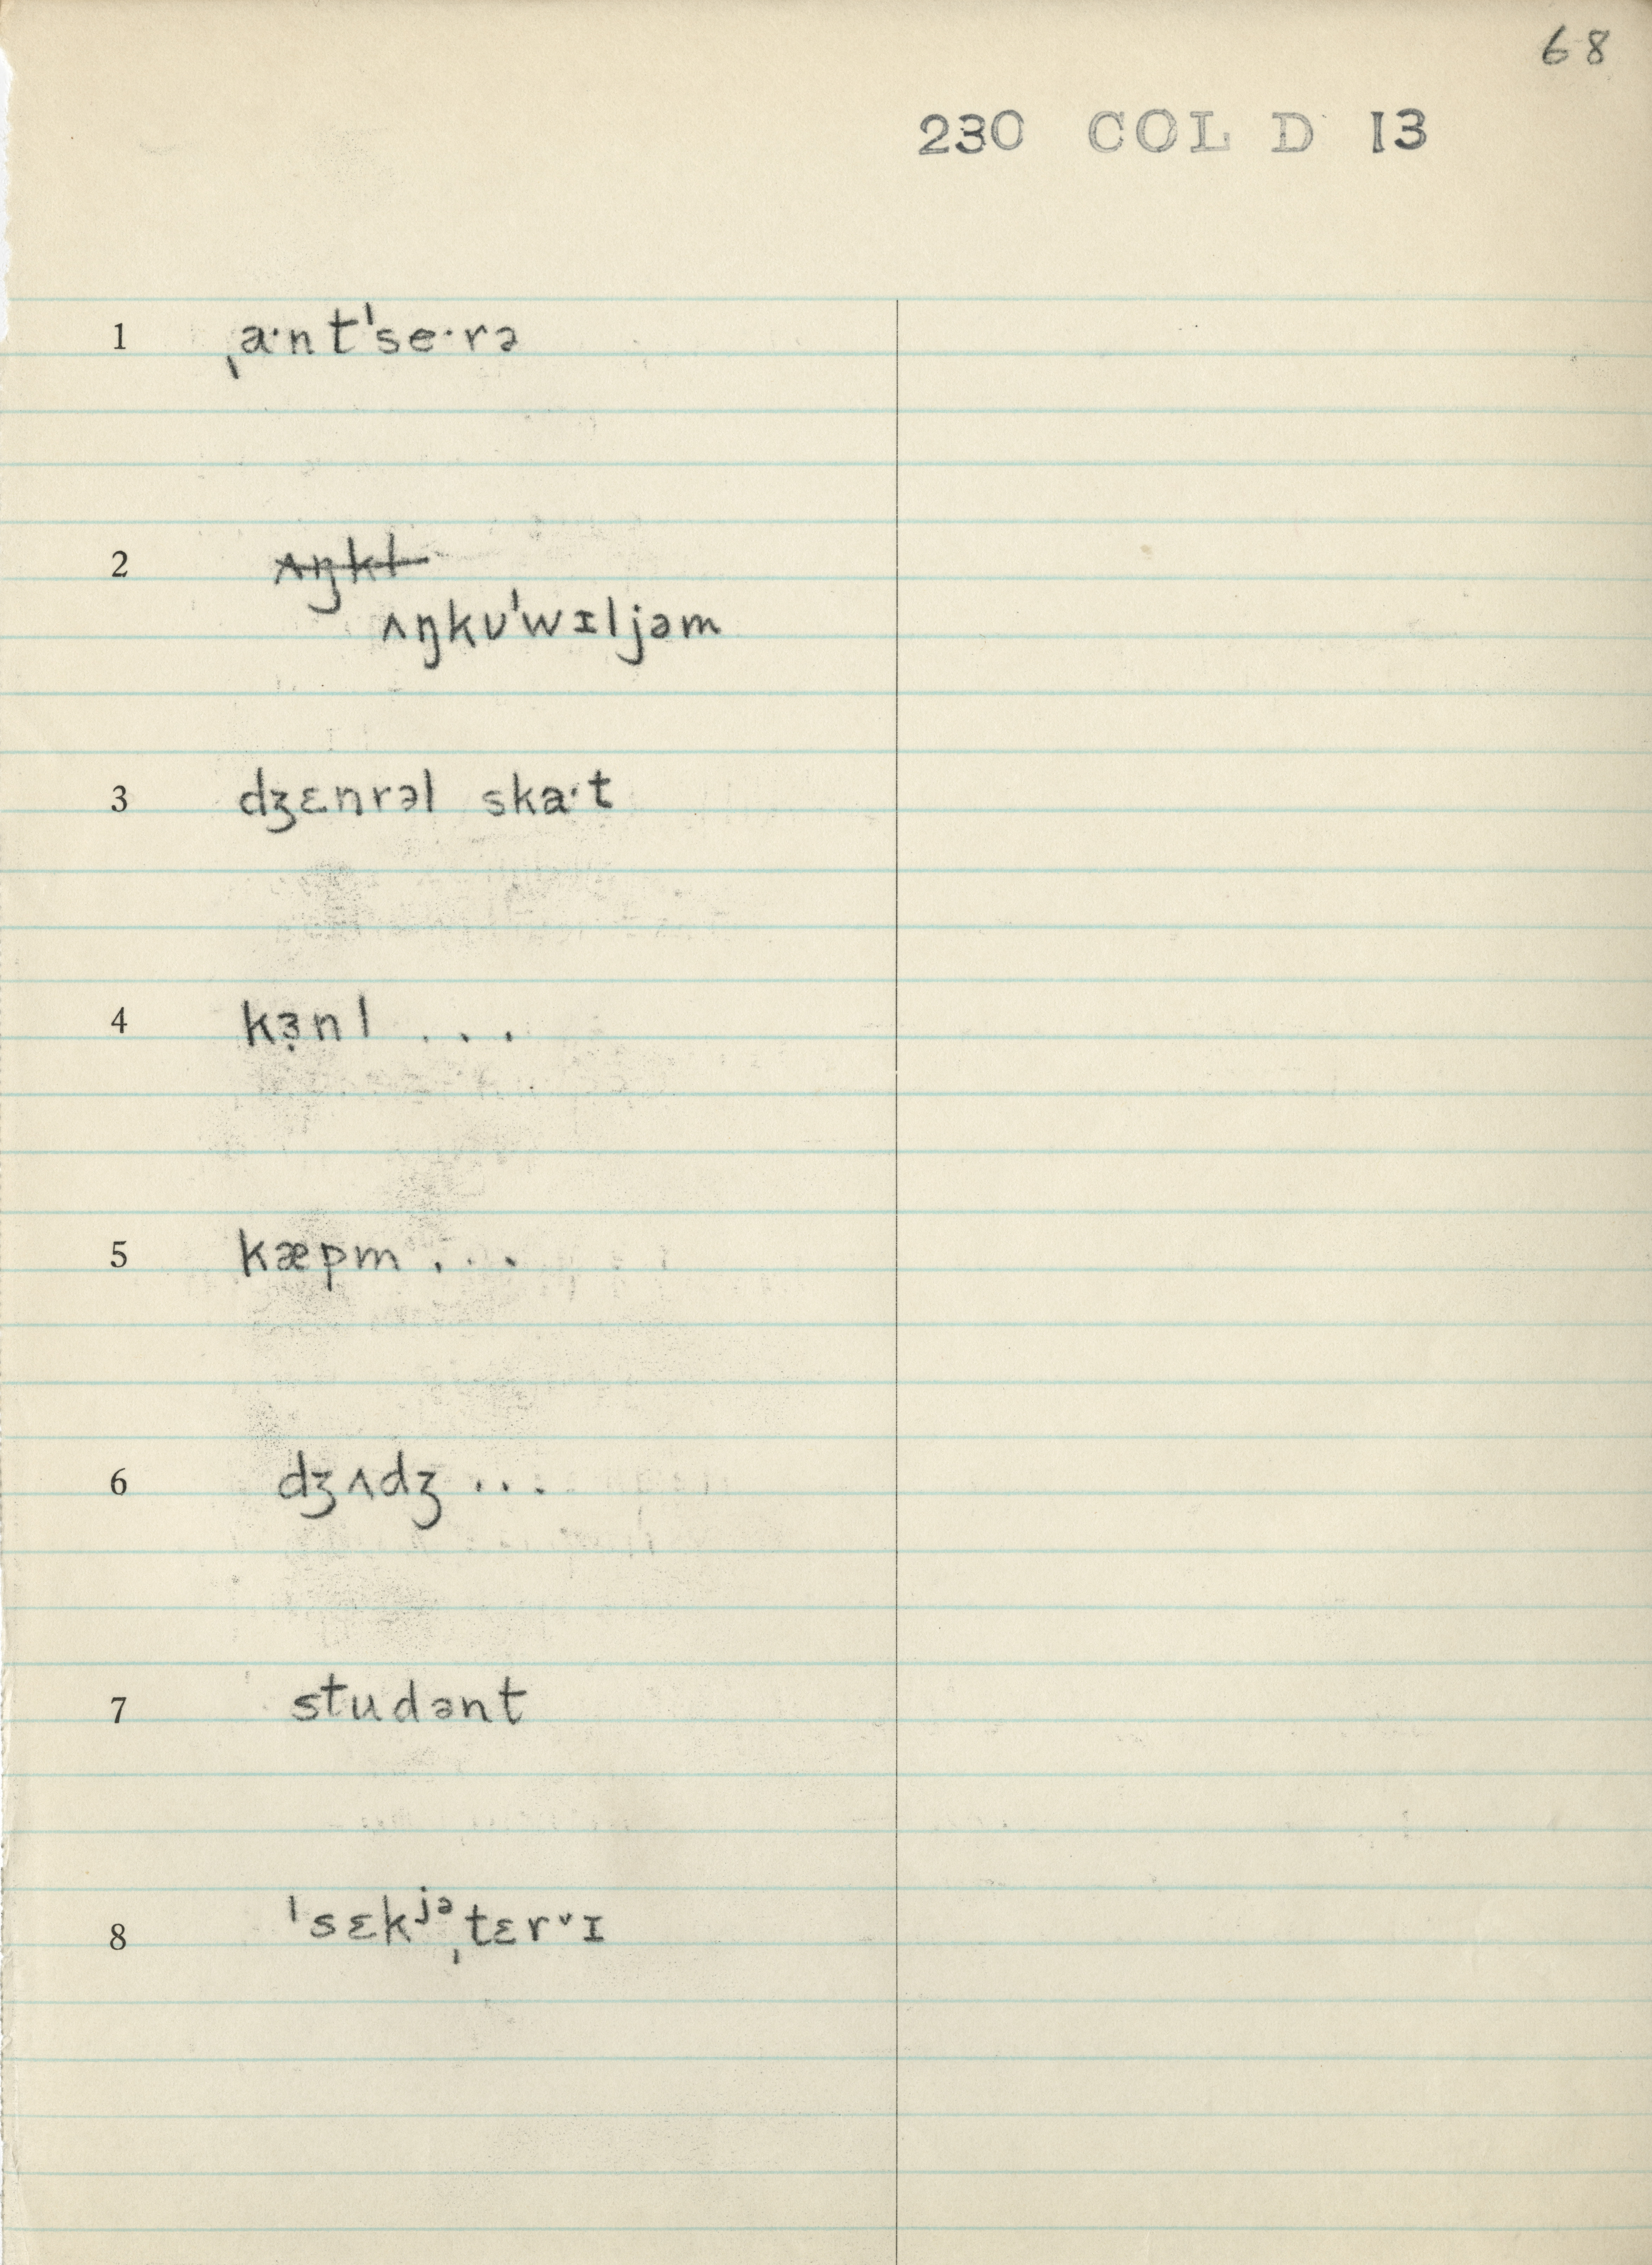 68
230 COL D 13
1 ˌa·nt'se·rə
2 ʌŋkl
ʌŋkʊ'wɪljəm
3 dʒɛnrəl ska·t
4 kɜ̣nl . . .
5 kæpm . . .
6 dʒʌdʒ . . .
7 studənt
8 'sɛkʲᵊˌtɛrᵛɪ